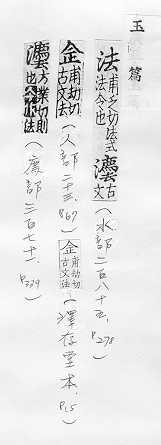 玉篇
法甫乏切法式法令也灋古文(水部二百八十五、P.278)
佱甫劫切古文法(人部二十三、P.67)佱甫劫切古文法(澤存堂本、P.15)
灋方業切則也今作法(廌部三百七十一、P.339)